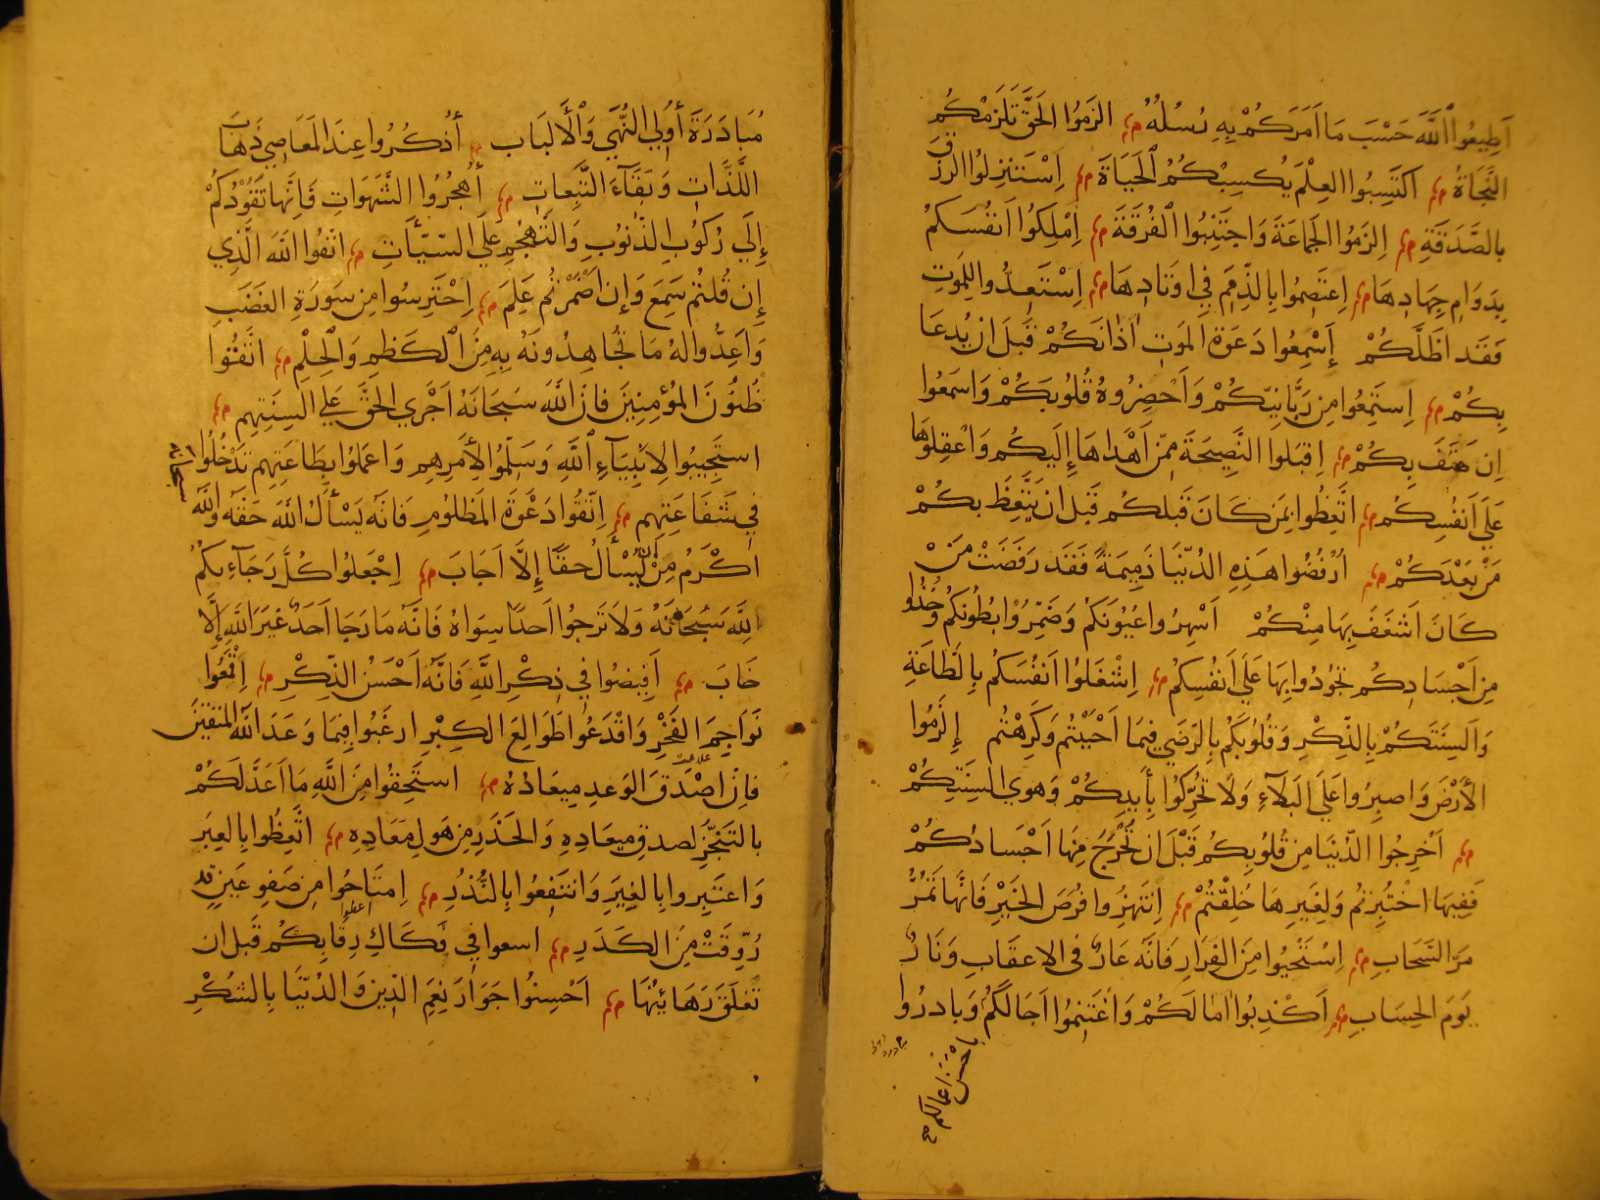 اَطِيعُوا اللَّهَ حَسْبَ مَا اَمَرَكُمْ بِهِ رُسُلُهُ الزَمُوا الحَقَّ تَلزَمْكُم
النَّجَاةُ اكتَسِبُوا العِلْمَ يُكسِبْكُمُ الحَيَاةَ اِسْتَنزِلُوا الرزق
بالصَّدَقَةِ اِلزَمُوا الجَمَاعَةَ وَاجتَنِبُوا الفُرقَةَ اِمْلِكُوا اَنفُسَكُم
بِدَوَامِ جِهَادِهَا اِعتَصِمُوا بِالذِّمَمِ فِي اوتَادِهَا اِسْتَعِدُّوا لِلمَوتِ
فَقَد اَظَلَّكُمْ اِسْمِعُوا دَعوَةَ المَوتِ اٰذَانَكُمْ قَبلَ ان يُدعَا
بِكُمْ اِستَمِعُوا مِن رَبَّانِيّكُمْ وَاَحضِرُوهُ قُلُوبَكُمْ وَاسمَعُوا
اِن هَتَفَ بِكُمْ اِقبَلوا النَّصِيحَةَ مِمّن اَهْدَاهَا اِلَيكُم وَاعقِلوهَا
عَلَى اَنفُسِكُم اتَّعِظُوا بِمَن كَانَ قَبلَكُم قَبلَ ان يَتَّعِظَ بكُمْ
مَنْ بَعْدَكُمْ اُرْفُضُوا هَذِهِ الدُّنيَا ذَمِيمَةً فَقَد رَفَضَتْ مَنْ
كَانَ اَشغَفَ بِهَا مِنْكُمْ اَسْهِرُوا عُيُونَكُم وَضَمِّرُوا بُطُونَكُم وَخُذُوا
مِن اَجْسَادِكُم تَجُودُوا بِهَا عَلَى اَنفُسِكُم اِشْغَلُوا اَنفُسَكُم بِالطَّاعَةِ
وَاَلسِنَتَكُمْ بِالذِّكْرِ وَقُلُوبَكُم بِالرِّضَي فِيمَا اَحْبَبْتُم وَكَرِهْتُم اِلزَمُوا
الاَرْضَ وَاصبِرُوا عَلَى البَلَآءِ وَلَا تُحَرِّكُوا بِأَيدِيكُمْ وَهوي اَلسِنَتِكُمْ
اَخرِجُوا الدُّنيَا مِن قُلُوبِكُم قَبْلَ ان تَخْرُجَ مِنهَا اَجْسَادُكُمْ
فَفِيهَا اختُبِرتُم وَلِغَيرِهَا خُلِقتُمْ اِنتَهِزُوا فُرَصَ الخَيْرِ فَانَّهَا تَمُرُّ
مَرَّ السَّحَابِ اِسْتَحْيُوا مِنَ الفِرَارِ فَانَّهُ عَارٌ فى الاعقَابِ وَنَارٌ
يَومَ الحِسَابِ اَكذِبُوا اٰمَالَكُمْ وَاغتَنِمُوا اٰجَالَكُم وَبَادرُوا
باحْسَن اعمالكم صح
مُبَادَرَةَ أُولِي النُّهَي وَالاَلبَابِ أُذكُرُوا عِندَ المَعَاصِي ذَهَابَ
اللَّذَّاتِ وَبَقَآءَ التَّبِعَاتِ أُهجُرُوا الشَّهَوَاتِ فَانَّهَا تَقُودُكُمْ
اِلَي رُكُوبِ الذّنوُبِ وَالتَّهَجُّمِ عَلَي السّيّأتِ اتّقوا اللهَ الَّذِي
اِن قُلتُمْ سَمِعَ وَاِن اَضمَرْتُم عَلِمَ اِحْتَرِسُوا مِن سَورَةِ الغَضَبِ
وَاَعِدُّوا لهُ مَا تُجَاهِدُونَهُ بِهِ مِنَ الكَظمِ وَالحِلمِ اتّقوا
ظُنُونَ المُؤمِنِينَ فَاِنَّ اللَّهَ سُبحَانَهُ اَجْرَي الحَقَّ عَلَي اَلسِنَتِهِم
استَجِيبُوا لِاَنبِيَآءِ اللَّهِ وَسَلِّمُوا لِأَمرِهِم وَاعمَلُوا بِطَاعَتِهِم تَدخُلُوا
سبحانه
فِي شَفَاعَتِهِم اِتَّقُوا دَعْوَةَ المَظلُومِ فَانَّه يَسْأَلُ اللهَ حَقَّهُ واللَّهُ
اَكرَمُ مِن اَن يُسْأَلَ حَقًّا اِلَّا اَجَابَ اِجْعَلُوا كُلَّ رَجَآءِكُمْ
لِلَّهِ سُبْحَانَهُ وَلاَ تَرجُوا اَحَدًا سِوَاهُ فَانَّهُ مَا رَجَا اَحَدٌ غَيرَ اللهِ اِلَّا
خَابَ اَفِيضُوا فِي ذِكْرِ اللَّهِ فَانَّهُ اَحْسَنُ الذِّكْرِ اِقْمَعُوا
نَوَاجِمَ الفَخْرِ وَاقْدَعُوا طَوَالِعَ الكِبْرِ ارغَبُوا فِيمَا وَعَدَ اللهُ المتقين
فَاِنَّ اَصْدَقَ الوَعدِ مِيعَادُهُ استَحِقوا مِنَ اللَّهِ مَا اَعَدَّ لَكُمْ
بالتَنَجُّزِ لصدقِ مِيعَادِهِ وَالحَذَرِ مِن هَولِ مَعَادِهِ اتَّعِظُوا بِالعِبَرِ
وَاعتَبِروا بِالغِيَرِ وَانتَفِعُوا بِالنُّذُرِ اِمتَاحُوا مِن صَفوِ عَينٍ قد
رُوِّقَتْ مِنَ الكَدَرِ اسعوا فِي فَكَاكِ رِقَابِكُم قَبلَ ان
تَغلَقَ رَهَائِنُهَا اَحْسِنُوا جِوَارَ نِعَمِ الدّينِ وَالدُّنيَا بِالشكْرِ